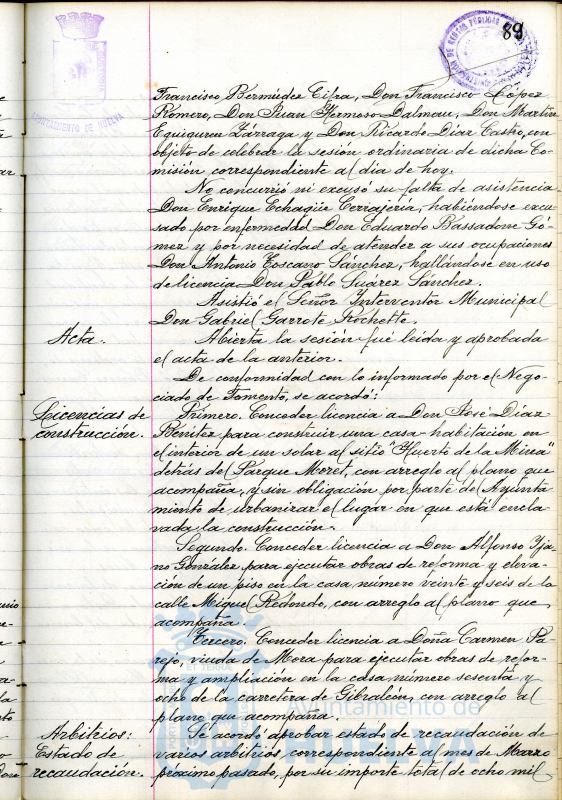 89
AYUNTAMIENTO DE HUELVA
Francisco Bermúdez Cifra, Don Francisco López
Romero, Don Juan Hermoso Dalmau, Don Martín
Eguiguren Zárraga y Don Ricardo Díaz Castro, con
objeto de celebrar la sesión ordinaria de dicha Co-
misión correspondiente al día de hoy.
No concurrió ni excusó su falta de asistencia
Don Enrique Echagüe Cerrajería, habiéndose excu-
sado por enfermedad Don Eduardo Bassadone Gó-
mez y por necesidad de atender a sus ocupaciones
Don Antonio Toscano Sánchez, hallándose en uso
de licencia Don Pablo Suárez Sánchez.
Asistió el Señor Interventor Municipal
Don Gabriel Garrote Rochette.
Acta.
Abierta la sesión fué leída y aprobada
el acta de la anterior.
De conformidad con lo informado por el Nego-
ciado de Fomento, se acordó:
Licencias de
construcción.
Primero. Conceder licencia a Don José Díaz
Benítez para construir una casa habitación en
el interior de un solar al sitio "Huerto de la Mina"
detrás del Parque Moret, con arreglo al plano que
acompaña, y sin obligación por parte del Ayunta-
miento de urbanizar el lugar en que está encla-
vada la construcción.
Segundo. Conceder licencia a Don Alfonso Yja-
no González para ejecutar obras de reforma y eleva-
ción de un piso en la casa número veinte y seis de la
calle Miguel Redondo, con arreglo al plano que
acompaña.
Tercero. Conceder licencia a Doña Carmen Pa-
rejo, viuda de Mora para ejecutar obras de refor-
ma y ampliación en la casa número sesenta y
ocho de la carretera de Gibraleón, con arreglo al
plano que acompaña.
Arbitrios:
Estado de
recaudación.
Se acordó aprobar estado de recaudación de
varios arbitrios, correspondiente al mes de Marzo
próximo pasado, por su importe total de ocho mil
Ayuntamiento de
HUELVA